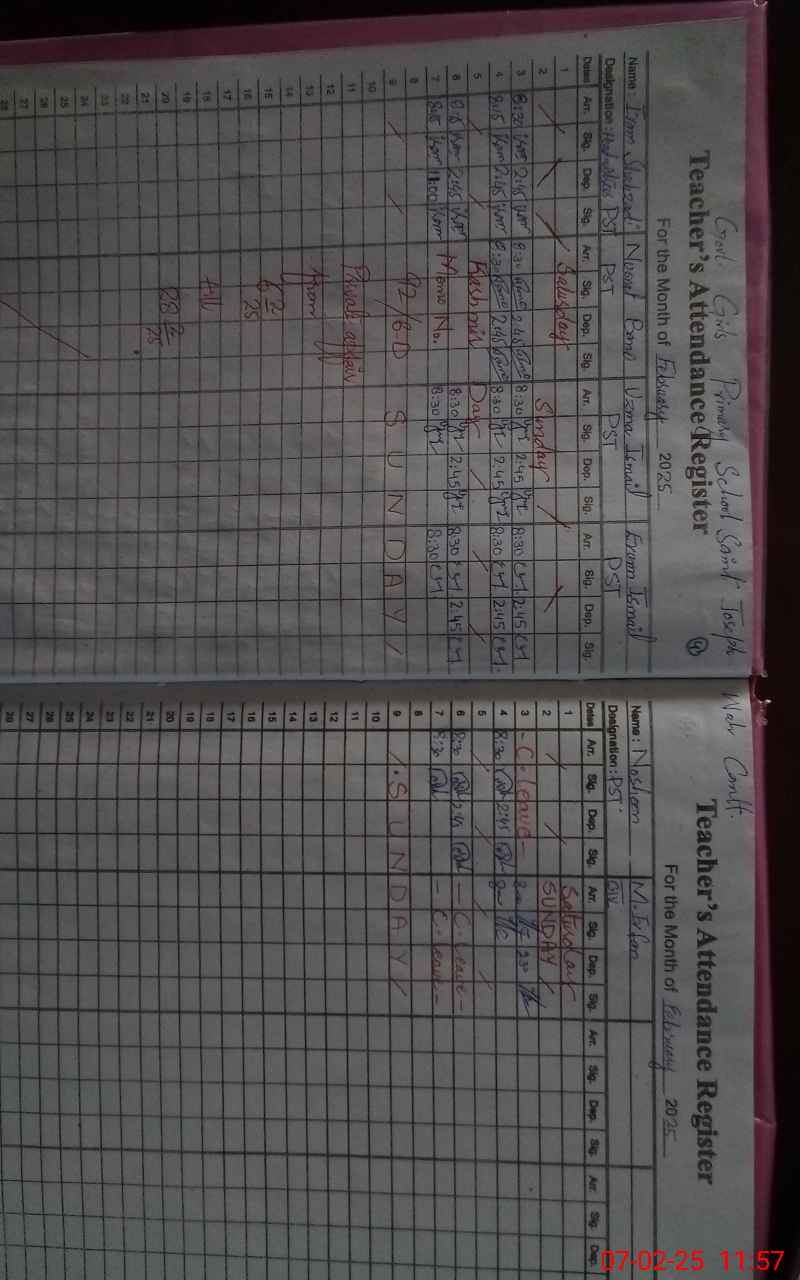 Govt. Girls Primary School Saint Joseph
Teacher's Attendance Register
For the Month of February 2025
Name: Iram Shahzadi Nusrat Bano Uzma Ismail Erum Ismail
Designation: PST PST PST PST
Dates Arr. Sig. Dep. Sig. Arr. Sig. Dep. Sig. Arr. Sig. Dep. Sig. Arr. Sig. Dep. Sig.
1 Saturday
2 Sunday
3 8:30 2:45 8:30 2:45 8:30 2:45 8:30 2:45
4 8:15 2:45 8:30 2:45 8:30 2:45 8:30 2:45
5 Kashmir Day
6 2:45 8:30 2:45 8:30 2:45
7 8:15 11:00 Memo No. 8:30 8:30
8
9 92/B-D SUNDAY
10
11 Private affair
12
13 from
14
15 6 2/25
16
17
18 till
19
20 28 2/25
21
22
23
24
25
26
27
28
Teacher's Attendance Register
For the Month of February 2025
Name: Nosheen M. Irfan
Designation: PST
Dates Arr. Sig. Dep. Sig. Arr. Sig. Dep. Sig. Arr. Sig. Dep. Sig. Arr. Sig. Dep.
1 Saturday
2 SUNDAY
3 - C. Leave -
4 8:30 2:45
5
6 8:30 2:45 - C. Leave -
7 8:30 - C. Leave -
8
9 SUNDAY
10
11
12
13
14
15
16
17
18
19
20
21
22
23
24
25
26
27
28
07-02-25 11:57